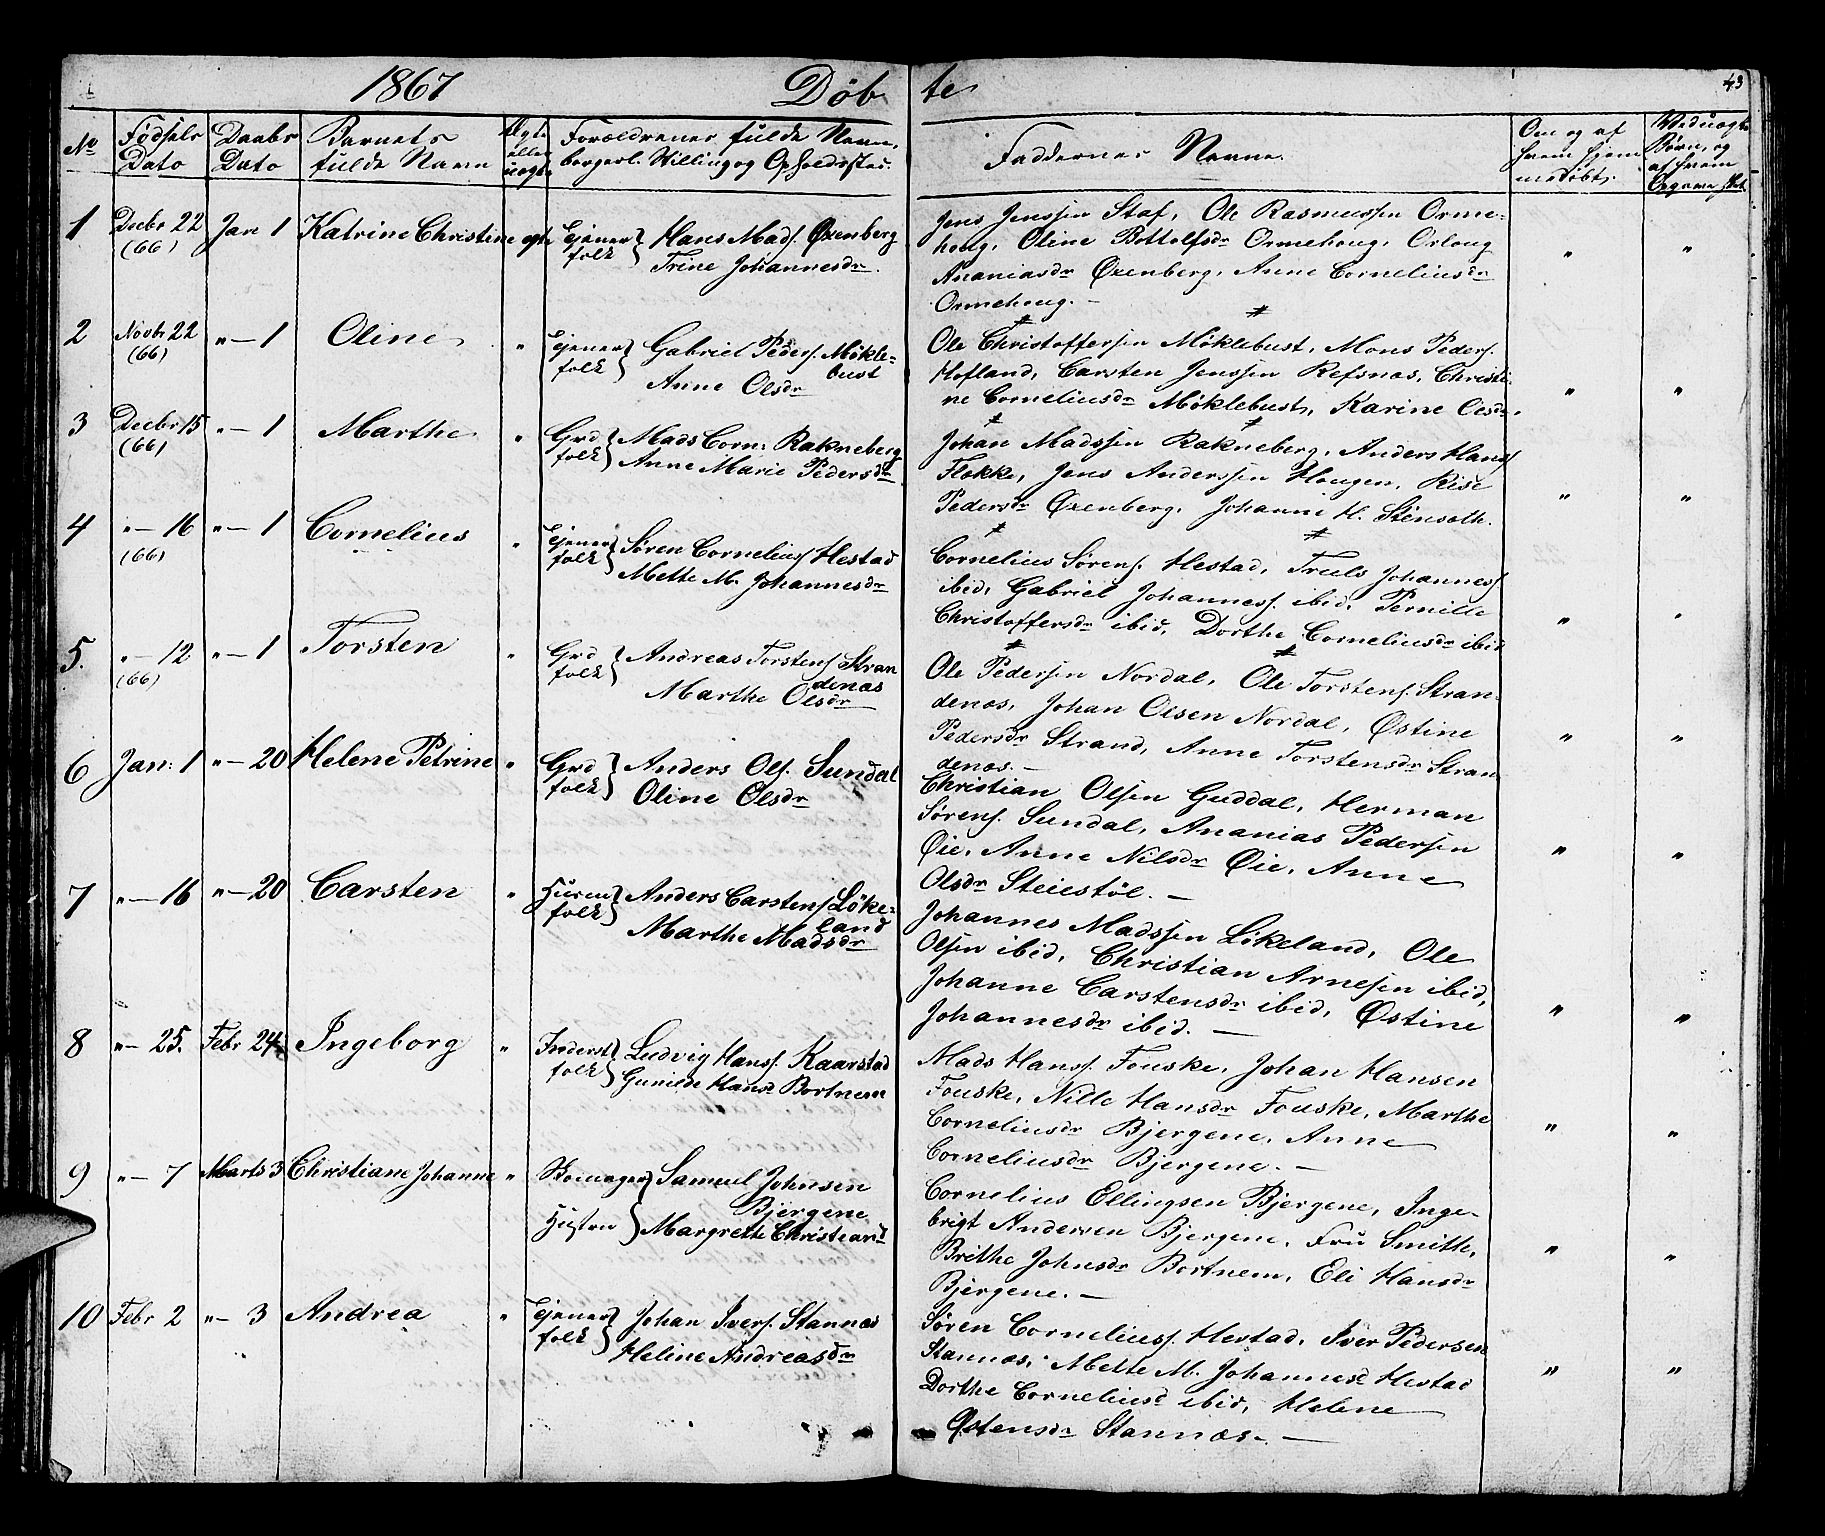 1867 Døbte 43
No
Fødsels Dato
Daabs Dato
Barnets fulde Navn
Ægte eller uægte
Forældrenes fulde Navn, borgerl. Stilling og Opholdssted.
Faddernes Navne.
Om og af hvem hjemmedøbt.
1 Decbr 22 (66) Jan 1 Katrine Christine egte Tjenerfolk } Hans Mads. Øxenberg
Trine Johannesdr.
Jens Jenssen Staf, Ole Rasmussen Orme-
houg, Oline Bottolfsdr Ormehoug, Orloug
Ananiasdr Øxenberg, Anne Corneliusdr
Ormehoug. —
2 Novbr 22 (66) " — 1 Oline " Tjenerfolk } Gabriel Peders. Möklebust
Anne Olsdr
Ole Christoffersen Möklebust, Mons Peders.
Hofland, Carsten Jenssen Refsnæs, Christi-
ne Corneliusdr Möklebust, Karine Olsdr.
3 Decbr 15 (66) " — 1 Marthe " Grdfolk } Mads Corn: Rakneberg
Anne Marie Pedersdr
Johan Madssen Rakneberg, Anders Hanss
Flokke, Jens Anderssen Hougen, Rise
Pedersdr Øxenberg, Johanni H. Stensøth.
4 " — 16 (66) " — 1 Cornelius " Tjenerfolk } Søren Corneliuss Hestad
Mette M. Johannesdr
Cornelius Sørens. Hestad, Truls Johanness
ibid, Gabriel Johanness. ibid, Pernille
Christoffersdr ibid, Dorthe Corneliusdr ibid
5. " — 12 (66) " — 1 Torsten " Grdfolk } Andreas Torstens. Strandenæs
Marthe Olsdr
Ole Pedersen Nordal, Ole Torstens. Stran-
denæs, Johan Olsen Nordal, Østine
Pedersdr Strand, Anne Torstensdr Stran
denæs. —
6 Jan: 1 " — 20 Helene Petrine " Grdfolk } Anders Ols. Sundal
Oline Olsdr
Christian Olsen Guddal, Herman
Sørens. Sundal, Ananias Pedersen
Øie, Anne Nilsdr Øie, Anne
Olsdr Steiestöl. —
7 " — 16 " — 20 Carsten " Husmfolk } Anders Carstens. Löke-
land
Marthe Madsdr
Johannes Madssen Lökeland, Ole
Olsen ibid, Christian Arnesen ibid,
Johanne Carstensdr ibid, Østine
Johannesdr ibid. —
8 " — 25. Febr 24 Ingeborg " Inderstfolk } Ludvig Hanss. Kaarstad
Gunilde Hansd Bortnem
Mads Hanss. Fouske, Johan Hansen
Fouske, Nille Hansdr Fouske, Marthe
Corneliusdr Bjergene, Anne
Corneliusdr Bjergene. —
9 " — 7 Marts 3 Christiane Johanne " Skomager } Samuel Johnsen
Bjergene
Hustru } Margrethe Christiansd
Cornelius Ellingsen Bjergene, Inge-
brigt Andersen Bjergene, Fru Smitt,
Brithe Johnsdr Bortnem, Eli Hansdr
Bjergene. —
10 Febr 2 " — 3 Andrea " Tjenerfolk } Johan Ivers. Stannæs
Heline Andreasdr
Søren Corneliuss. Hestad, Iver Pedersen
Stannæs, Mette M. Johannesd Hestad
Dorthe Corneliusd ibid, Helene
Østensdr Stannæs. —